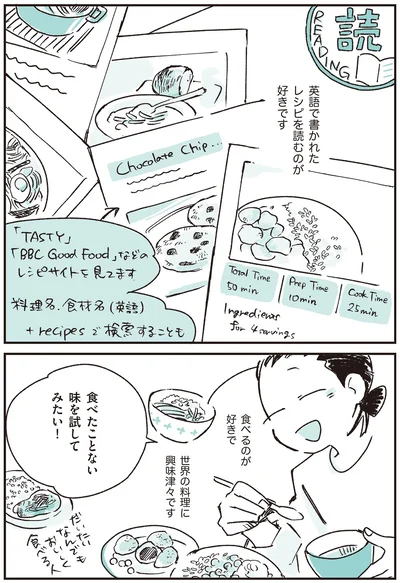 読
READING
英語で書かれた
レシピを読むのが
好きです
Chocolate Chip...
Total Time
50 min
Prep Time
10min
Cook Time
25min
Ingredients
for 4 servings
「TASTY」
「BBC Good Food」などの
レシピサイトを見てます
料理名、食材名(英語)
+ recipesで検索することも
食べるのが
好きで
世界の料理に
興味津々です
食べたことない
味を試して
みたい!
だいたい
なんでも
おいしく
食べる人